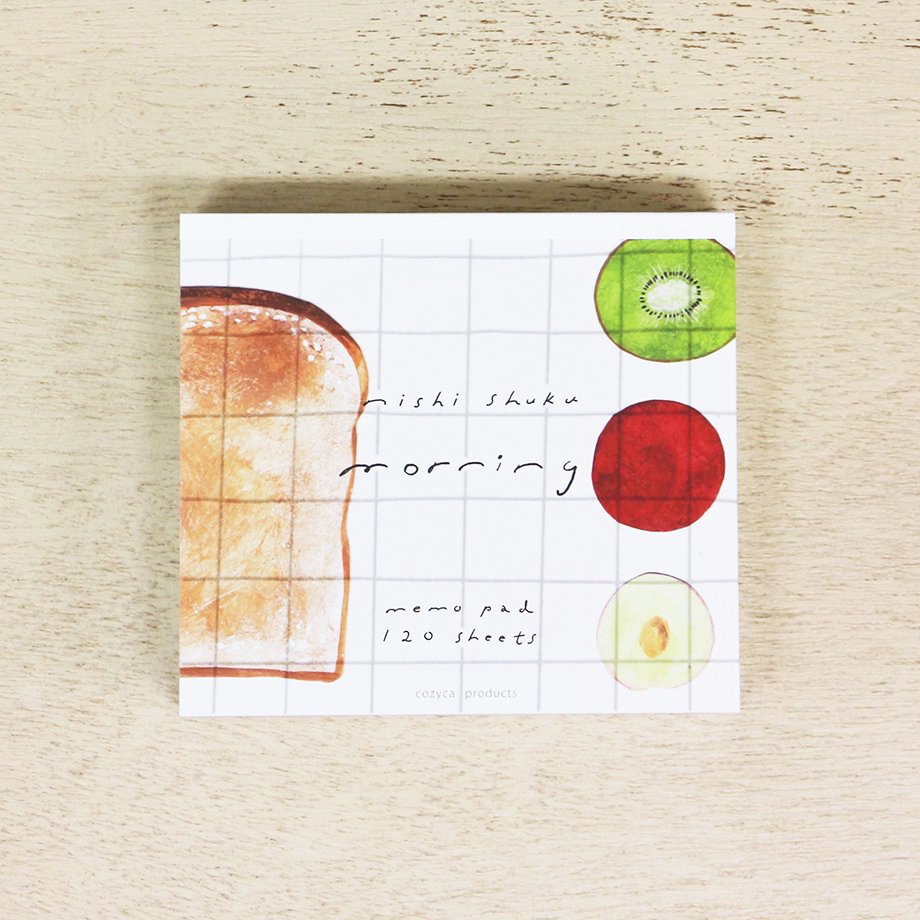 nishi shuku
morning
memo pad
120 sheets
cozyca products